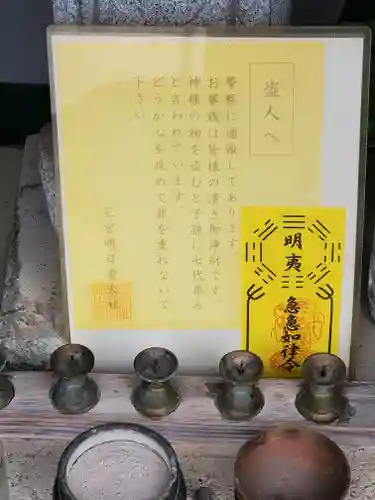 盗人へ
警察に通報してあります。
お賽銭は皆様の清き御浄財です
神様の物を盗むと子孫に七代祟る
と言われています。
どうか心を改めて罪を重ねないで
下さい。
元宮明日香大社
明夷
急急如律令